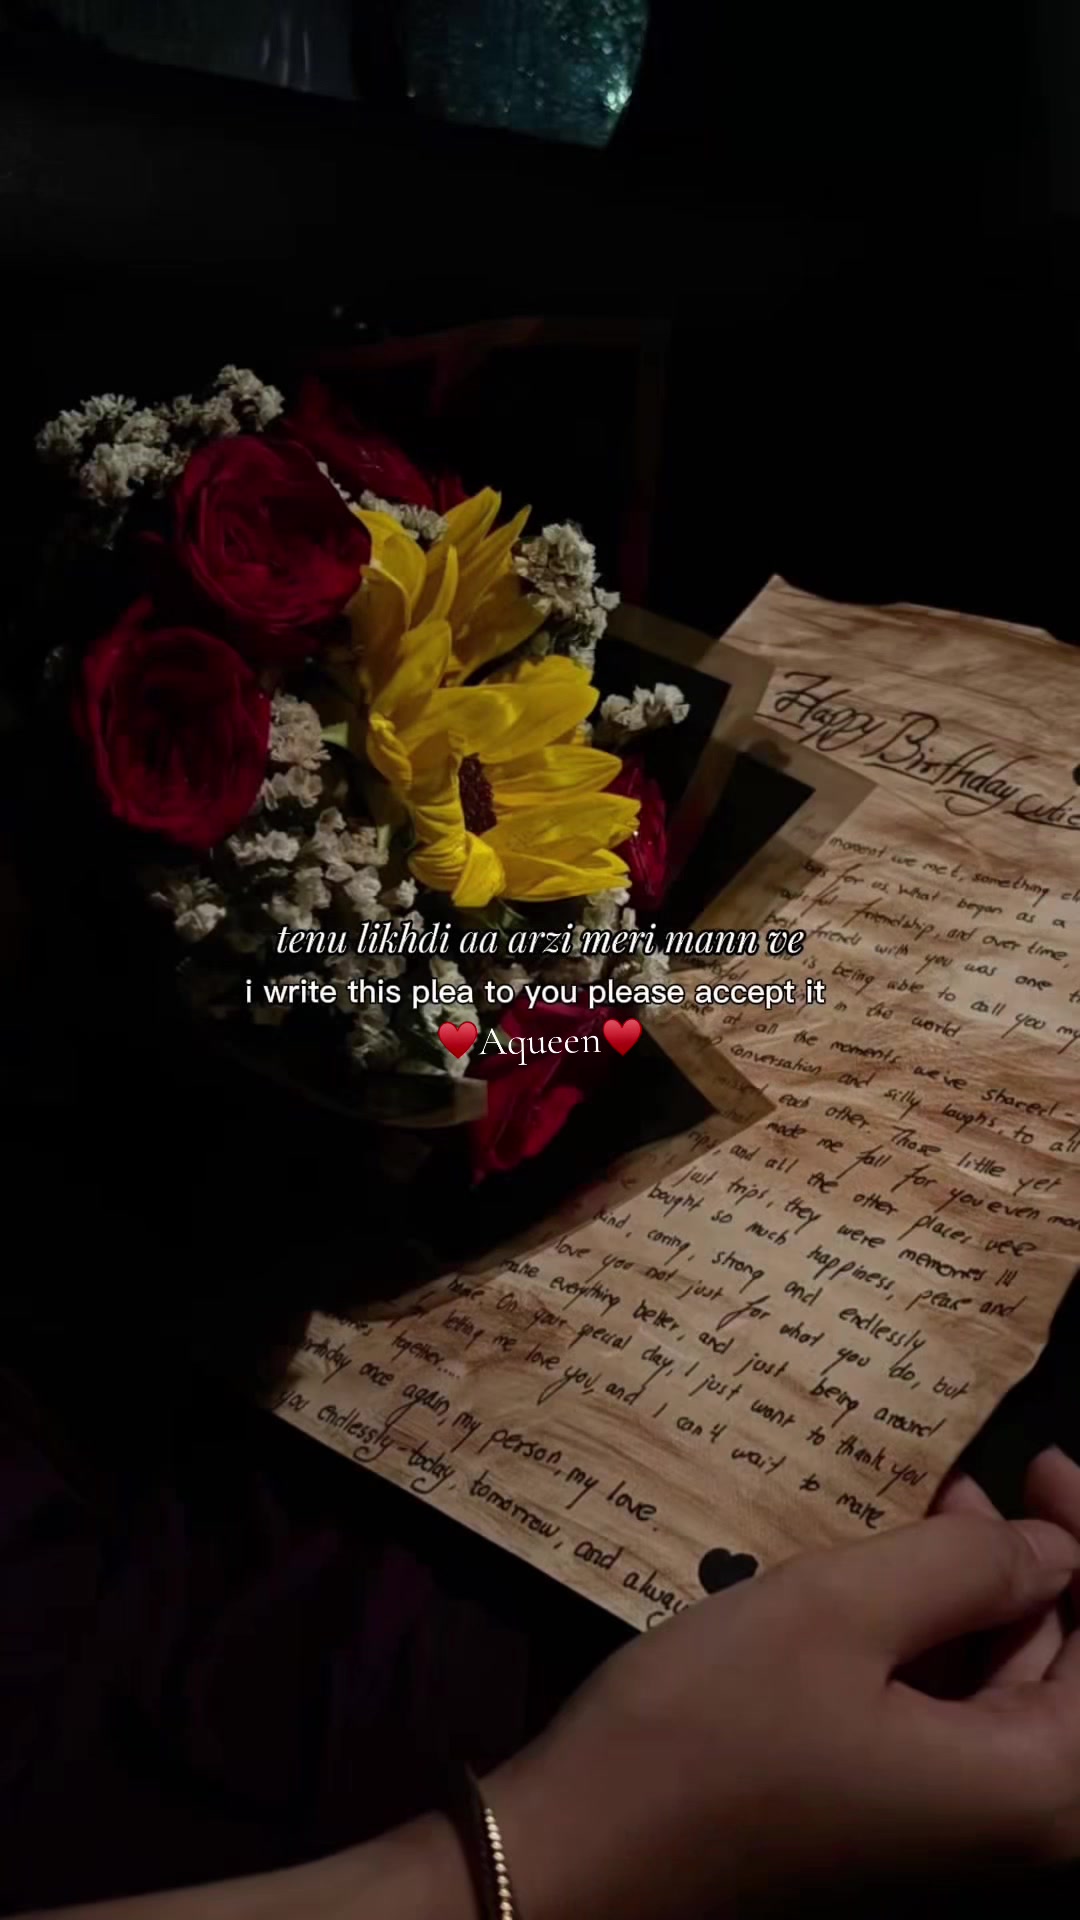 Happy Birthday cutie
moment we met, something
for us. What began as a
friendship, and over time,
best friends with you was one
is being able to call you my
in the world
at all the moments we've shared -
conversation and silly laughs, to all
each other. Those little yet
made me fall for you even more
and all the other places we
just trips, they were memories
bought so much happiness, peace and
kind, caring, strong and endlessly
love you not just for what you do, but
make everything better, and just being around
home. On your special day, I just want to thank you
letting me love you, and I can't wait to make
together....
birthday once again, my person, my love.
you endlessly - today, tomorrow, and always
tenu likhdi aa arzi meri mann ve
i write this plea to you please accept it
♥️Aqueen♥️